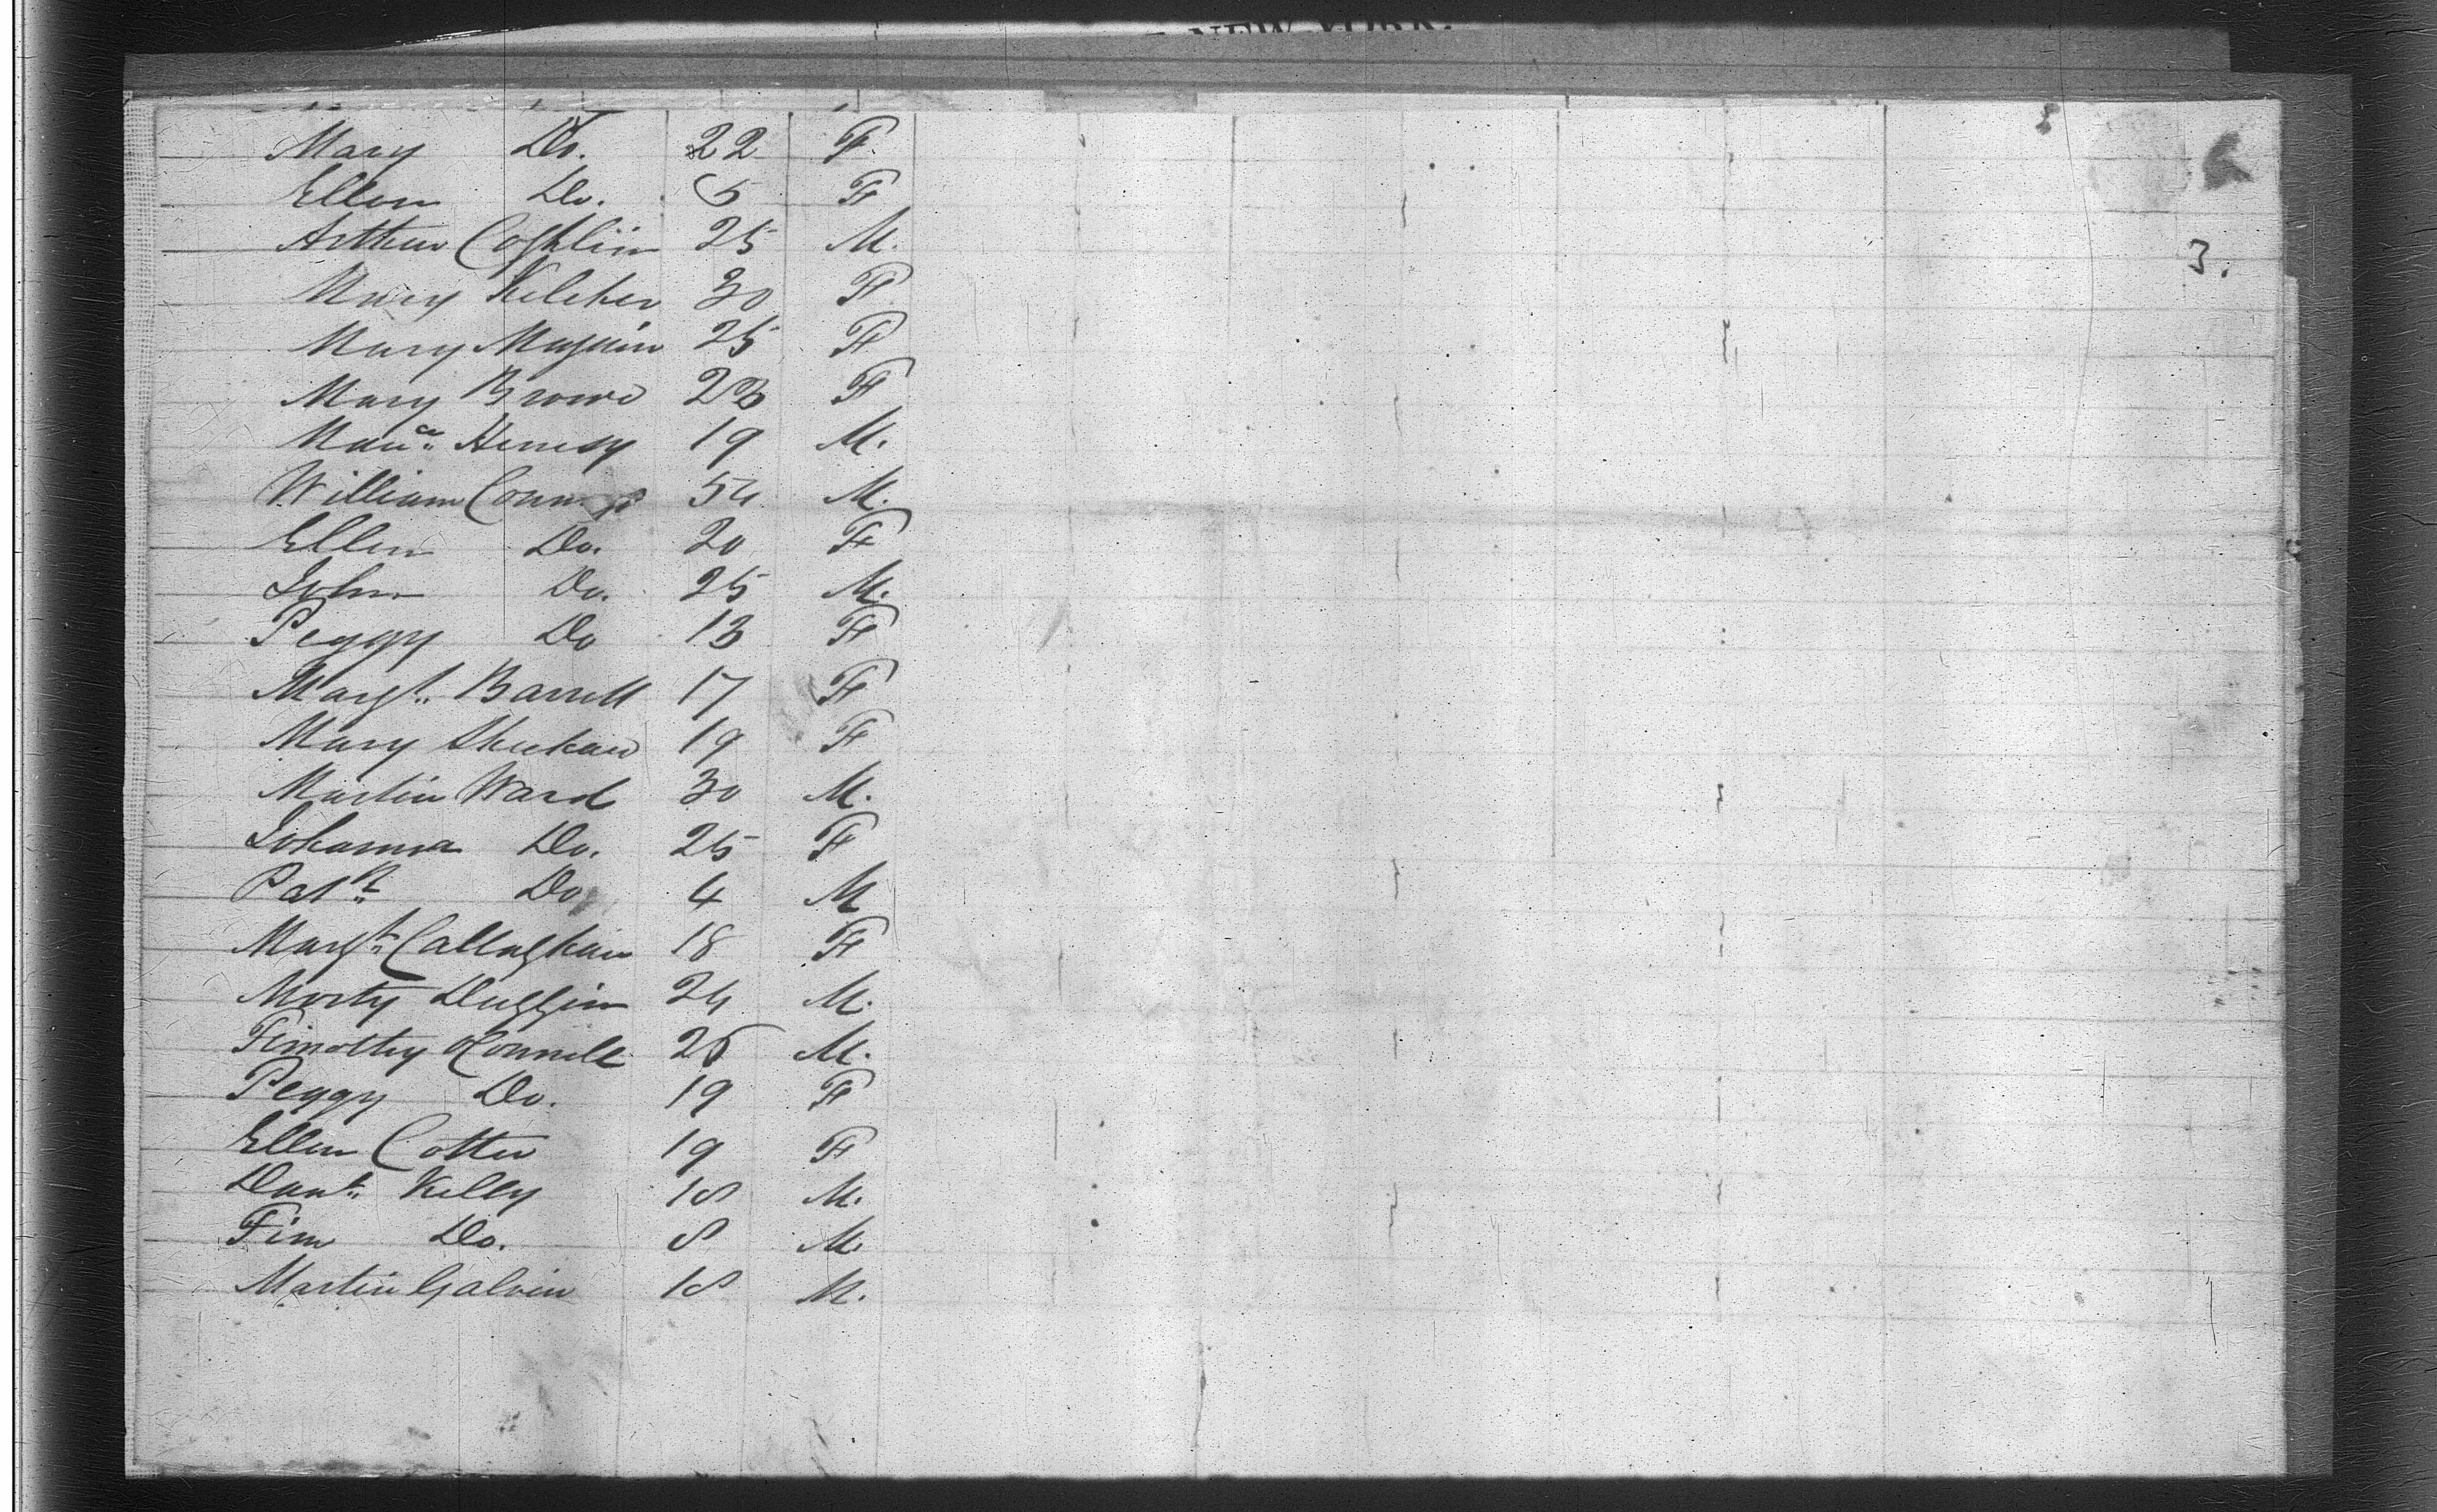 NEW YORK.
Mary Do. 22 F.
Ellen Do. 5 F
Arthur Coghlin 25 M.
3.
Mary Kelcher 30 F
Mary Maguin 25 F
Mary Brown 23 F
Mau.ce Henesy 19 M.
William Connor 54 M.
Ellen Do. 20 F
John Do. 25 M.
Peggy Do 13 F
Marg.t Barrett 17 F
Mary Sheehan 19 F
Martin Ward 30 M.
Johanna Do. 25 F
Pat.k Do 4 M
Marg.t Callaghan 18 F
Morty Duggin 24 M.
Timothy OConnell 26 M.
Peggy Do. 19 F
Ellen Cotter 19 F
Danl. Kelly 18 M.
Tim Do. 8 M.
Martin Galvin 18 M.